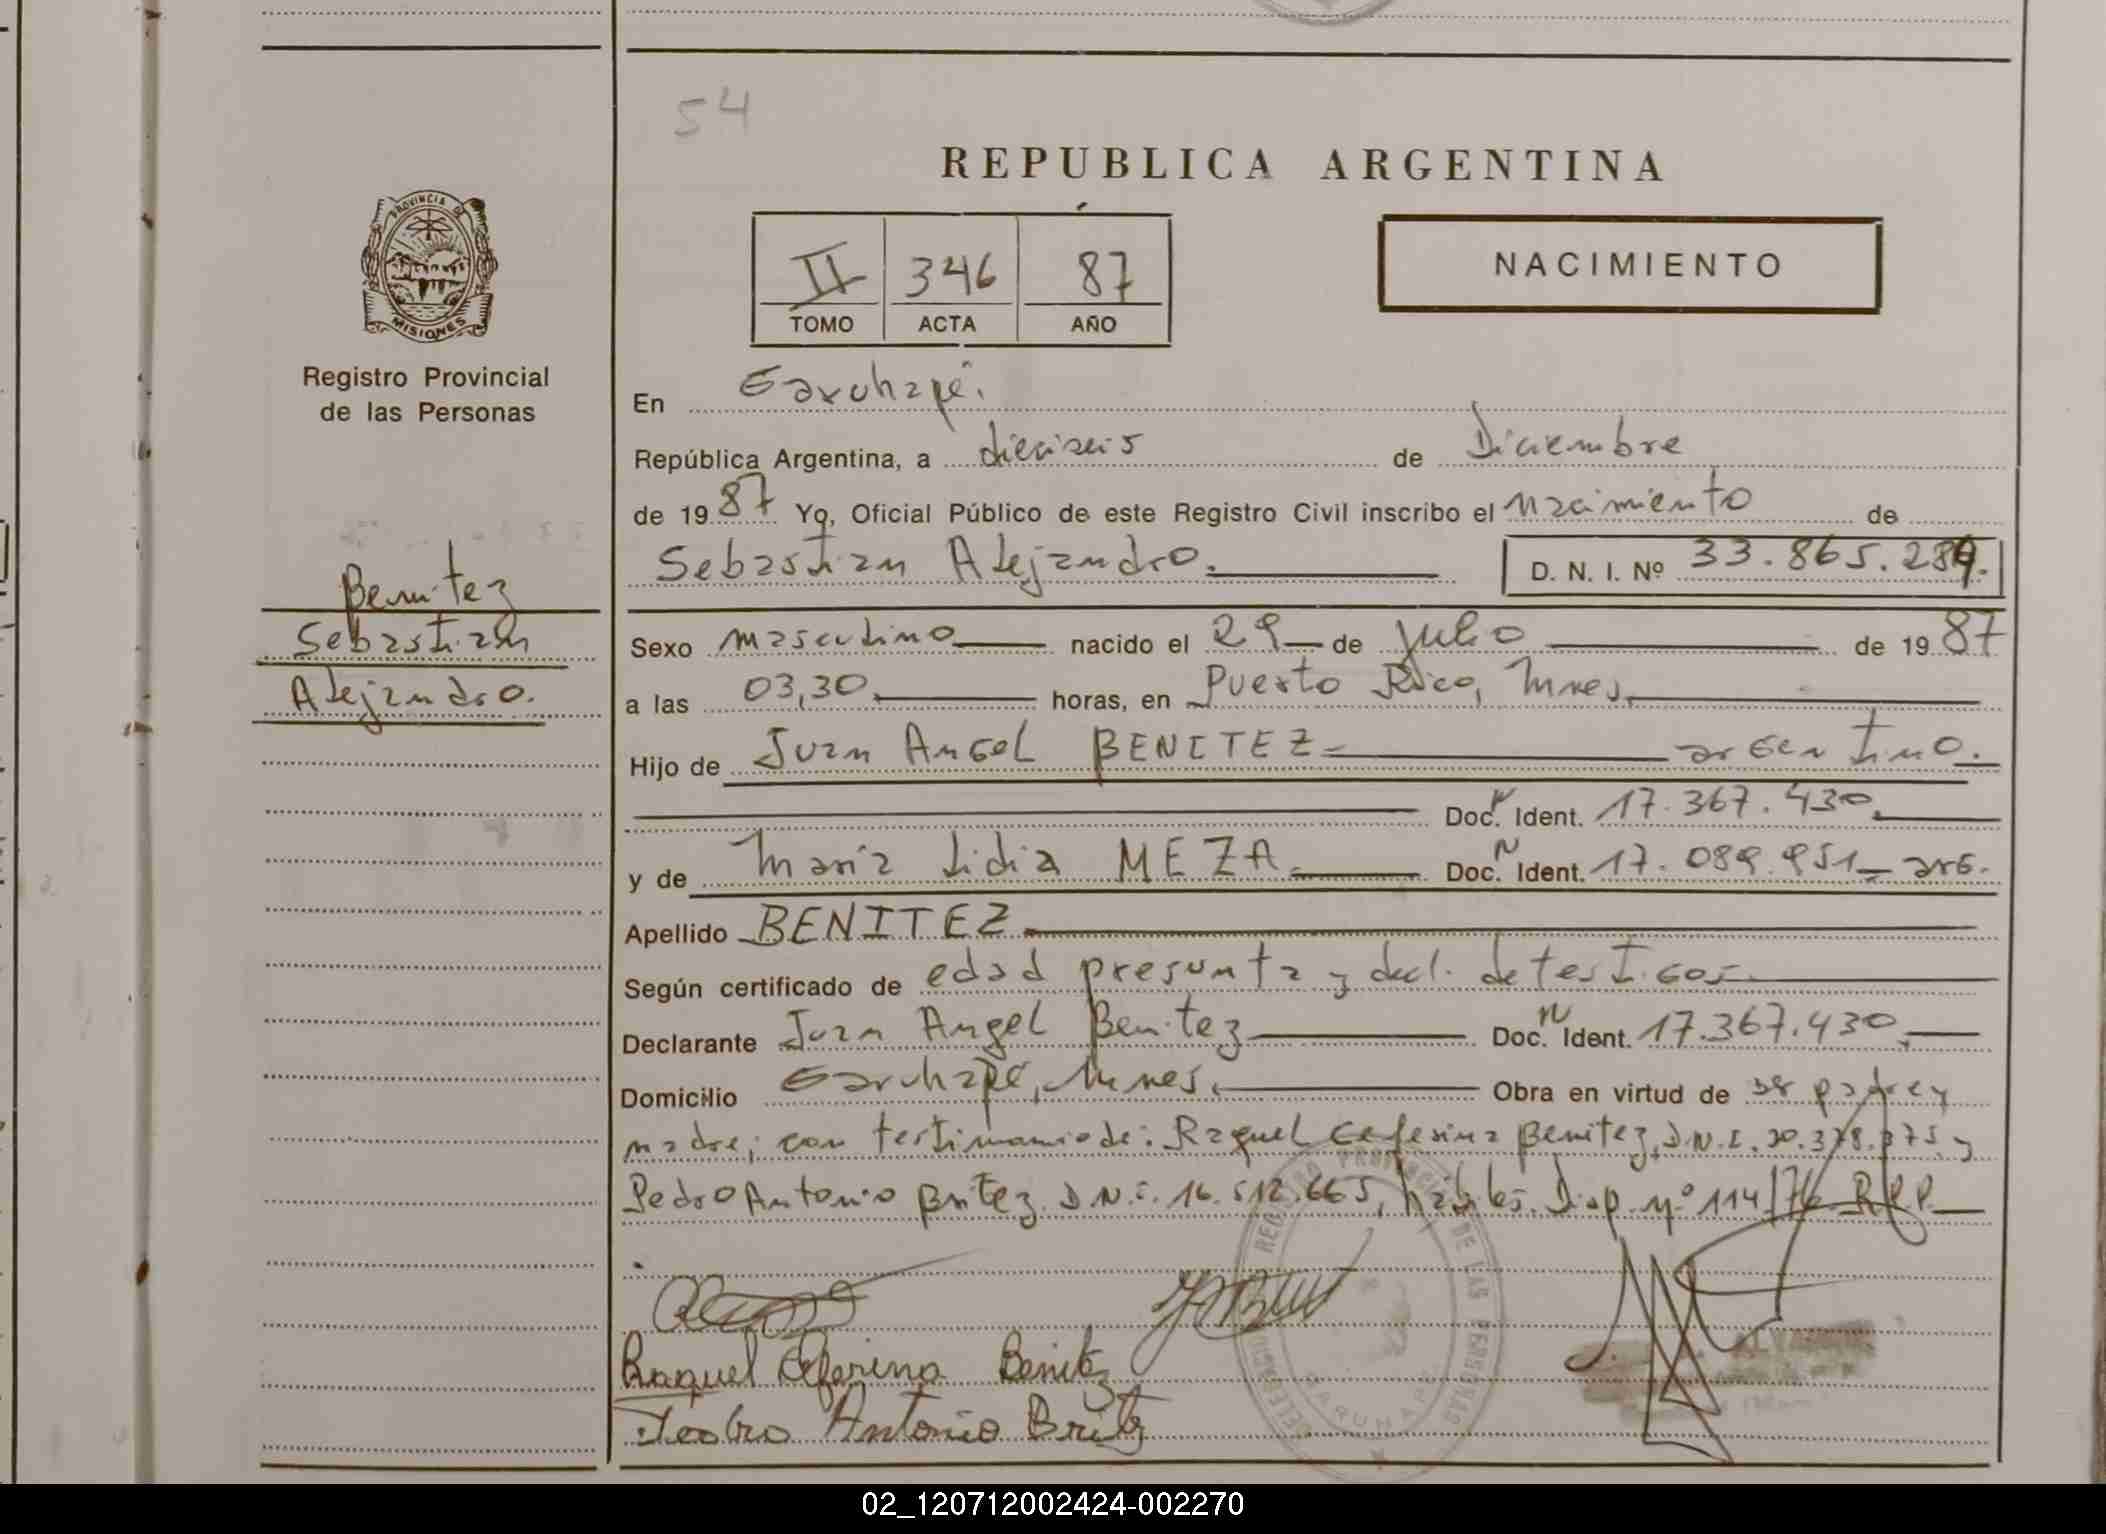 54
REPUBLICA ARGENTINA
PROVINCIA DE
MISIONES
II 346 87
TOMO ACTA AÑO
NACIMIENTO
Registro Provincial
de las Personas
En Garuhapé.
República Argentina, a dieciseis de Diciembre
de 1987 Yo, Oficial Público de este Registro Civil inscribo el nacimiento de
Sebastian Alejandro. D. N. I. Nº 33.865.284.
Benitez
Sebastian
Alejandro.
Sexo masculino nacido el 29 de Julio de 1987
a las 03,30 horas, en Puerto Rico, Mnes.
Hijo de Juan Angel BENITEZ argentino.
Doc. Ident. 17.367.430
y de Maria Lidia MEZA Doc. Ident. 17.089.951 arg.
Apellido BENITEZ
Según certificado de edad presunta y decl. de testigos
Declarante Juan Angel Benitez Doc. Ident. 17.367.430
Domicilio Garuhapé, Mnes. Obra en virtud de ser padre y
madre; con testimonio de: Raquel Ceferina Benitez, D.N.I. 20.378.375 y
Pedro Antonio Britez D.N.I. 16.512.665, hábiles. Disp. nº 114/76 R.P.P.
Raquel Ceferina Benitez
Pedro Antonio Britez
REGISTRO PROVINCIAL DE LAS PERSONAS
DELEGACION
GARUHAPE
02_120712002424-002270